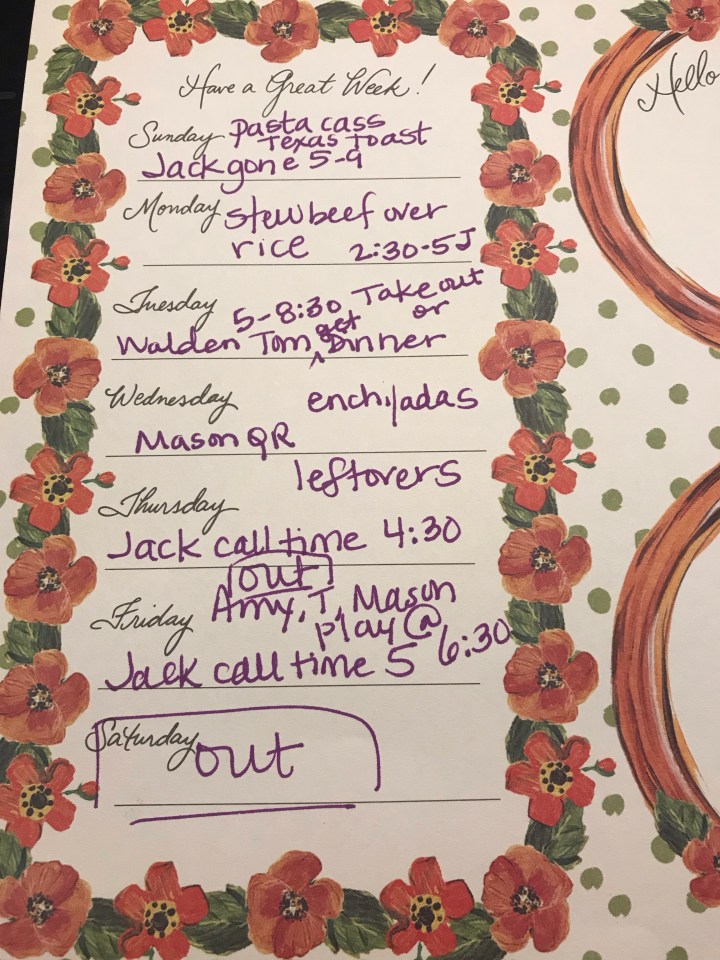 Have a Great Week!
Hello
Sunday Pasta cass
Texas Toast
Jack gone 5-9
Monday stew beef over
rice 2:30-5 J
Tuesday 5-8:30 Take out
or
Walden Tom get Dinner
Wednesday enchiladas
Mason QR
leftovers
Thursday
Jack call time 4:30
out
Amy, T, Mason
Friday play @
6:30
Jack call time 5
Saturday out